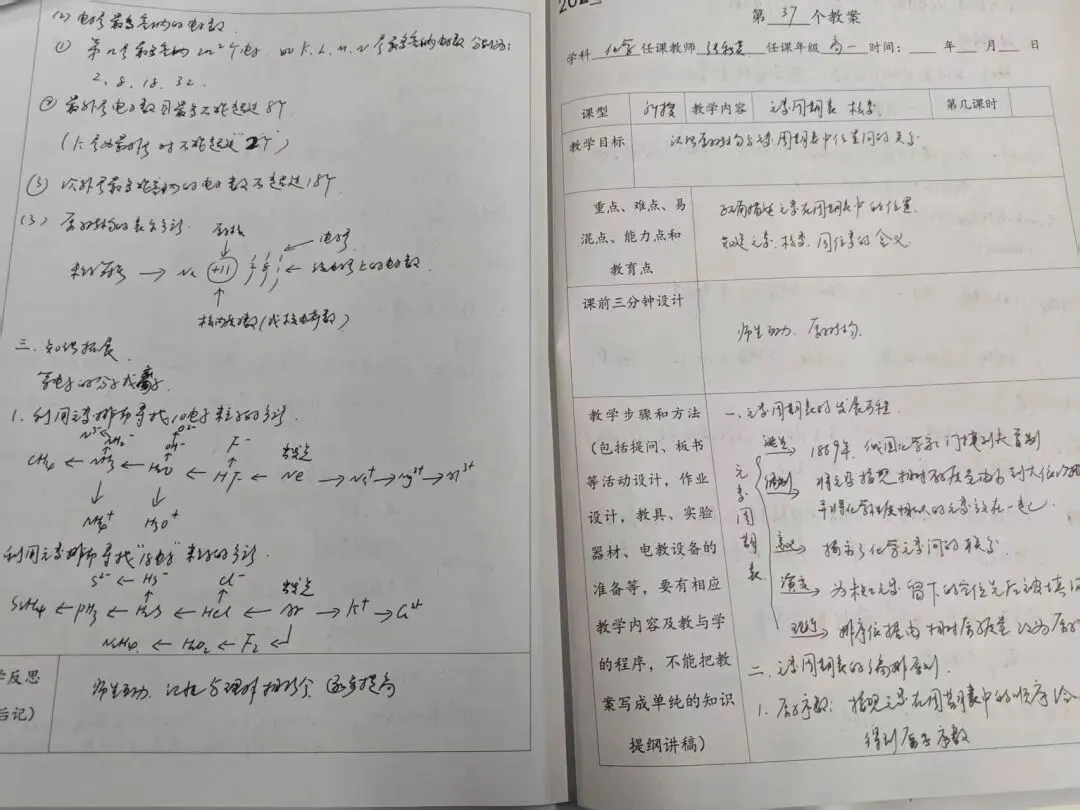 (2) 电子层最多容纳的电子数
① 第n层最多容纳2n²个电子. 如K、L、M、N层最多容纳电子数分别为:
2、8、18、32.
② 最外层电子数目最多不能超过8个
(K层为最外层时不能超过“2个”)
③ 次外层最多能容纳的电子数不超过18个
(3) 原子结构的表示方法.
原子核 电子层
→ Na +11 2 8 1 ← 该电子层上的电子数.
核内质子数(或核电荷数)
三. 知识拓展
等电子的分子或离子.
1. 利用元素排布寻找10电子来粒的方法.
N³⁻ NH₂⁻ O²⁻ OH⁻ F⁻ 出发点
CH₄ ← NH₃ ← H₂O ← HF ← Ne → Na⁺ → Mg²⁺ → Al³⁺
NH₄⁺ H₃O⁺
利用元素排布寻找“18电子”来粒的方法.
S²⁻ ← HS⁻ Cl⁻ 出发点
SiH₄ ← PH₃ ← H₂S ← HCl ← Ar → K⁺ → Ca²⁺
← H₂O₂ ← F₂
学反思
后记)
师生互动. 记忆与理解相结合 逐步提高
第 37 个教案
学科 化学 任课教师 任课年级 高一 时间: 年 月 日
课型 新授 教学内容 元素周期表 核素 第几课时
教学目标 认识原子结构与元素周期表中位置间的关系
重点、难点、易混点、能力点和教育点
正确描述元素在周期表中的位置.
知道元素、核素、同位素的含义
课前三分钟设计
师生互动. 原子结构.
教学步骤和方法
(包括提问、板书
等活动设计,作业
设计,教具、实验
器材、电教设备的
准备等,要有相应
教学内容及教与学
的程序,不能把教
案写成单纯的知识
提纲讲稿)
一. 元素周期表的发展历程.
元素周期表
诞生 → 1869年. 俄国化学家门捷列夫首制
编制 → 将元素按照相对原子质量由小到大依次排
并将化学性质相似的元素放在一起.
意义 → 揭示了化学元素间的联系.
演变 → 为未知元素留下的空位先后被填
现在 → 排序依据由相对原子质量改为原子
二. 元素周期表的编排原则.
1. 原子序数: 按照元素在周期表中的顺序给
得到原子序数